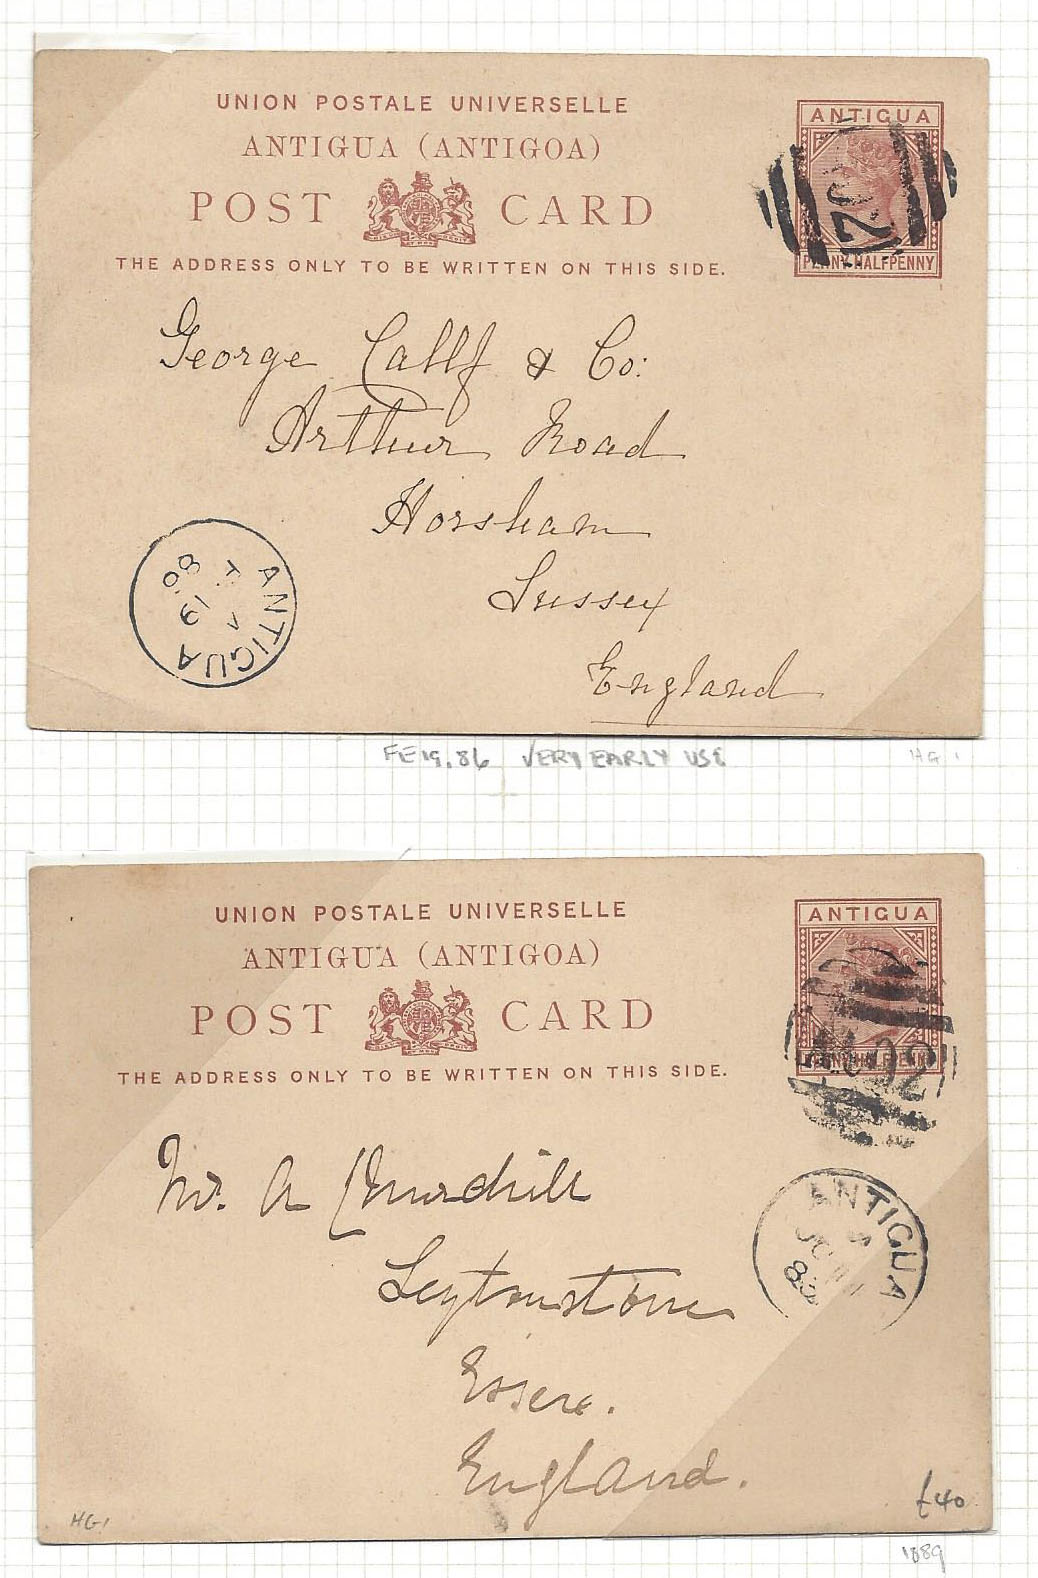 UNION POSTALE UNIVERSELLE
ANTIGUA (ANTIGOA)
POST CARD
THE ADDRESS ONLY TO BE WRITTEN ON THIS SIDE.
ANTIGUA
PENNY HALFPENNY
George Callf & Co:
Arthur Road
Horsham
Sussex
England
ANTIGUA
19
ANTIGUA
FE 19.86 VERY EARLY USE
HG 1
UNION POSTALE UNIVERSELLE
ANTIGUA (ANTIGOA)
POST CARD
THE ADDRESS ONLY TO BE WRITTEN ON THIS SIDE.
ANTIGUA
A02
Mr. A Churchill
Leytonstone
Essex.
England.
ANTIGUA
HG1
£40
1889